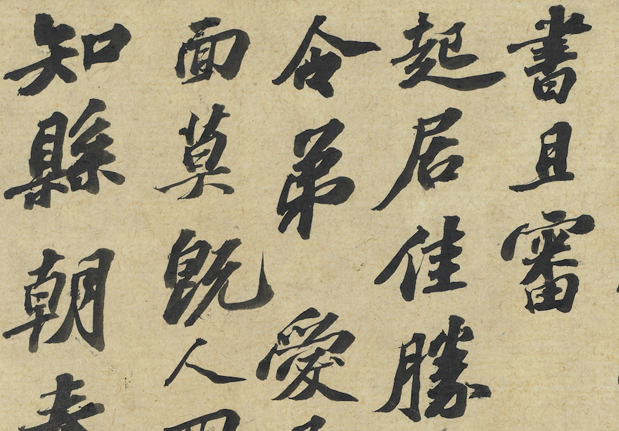 書且審
起居佳勝
令弟愛
面莫既人
知縣朝奉